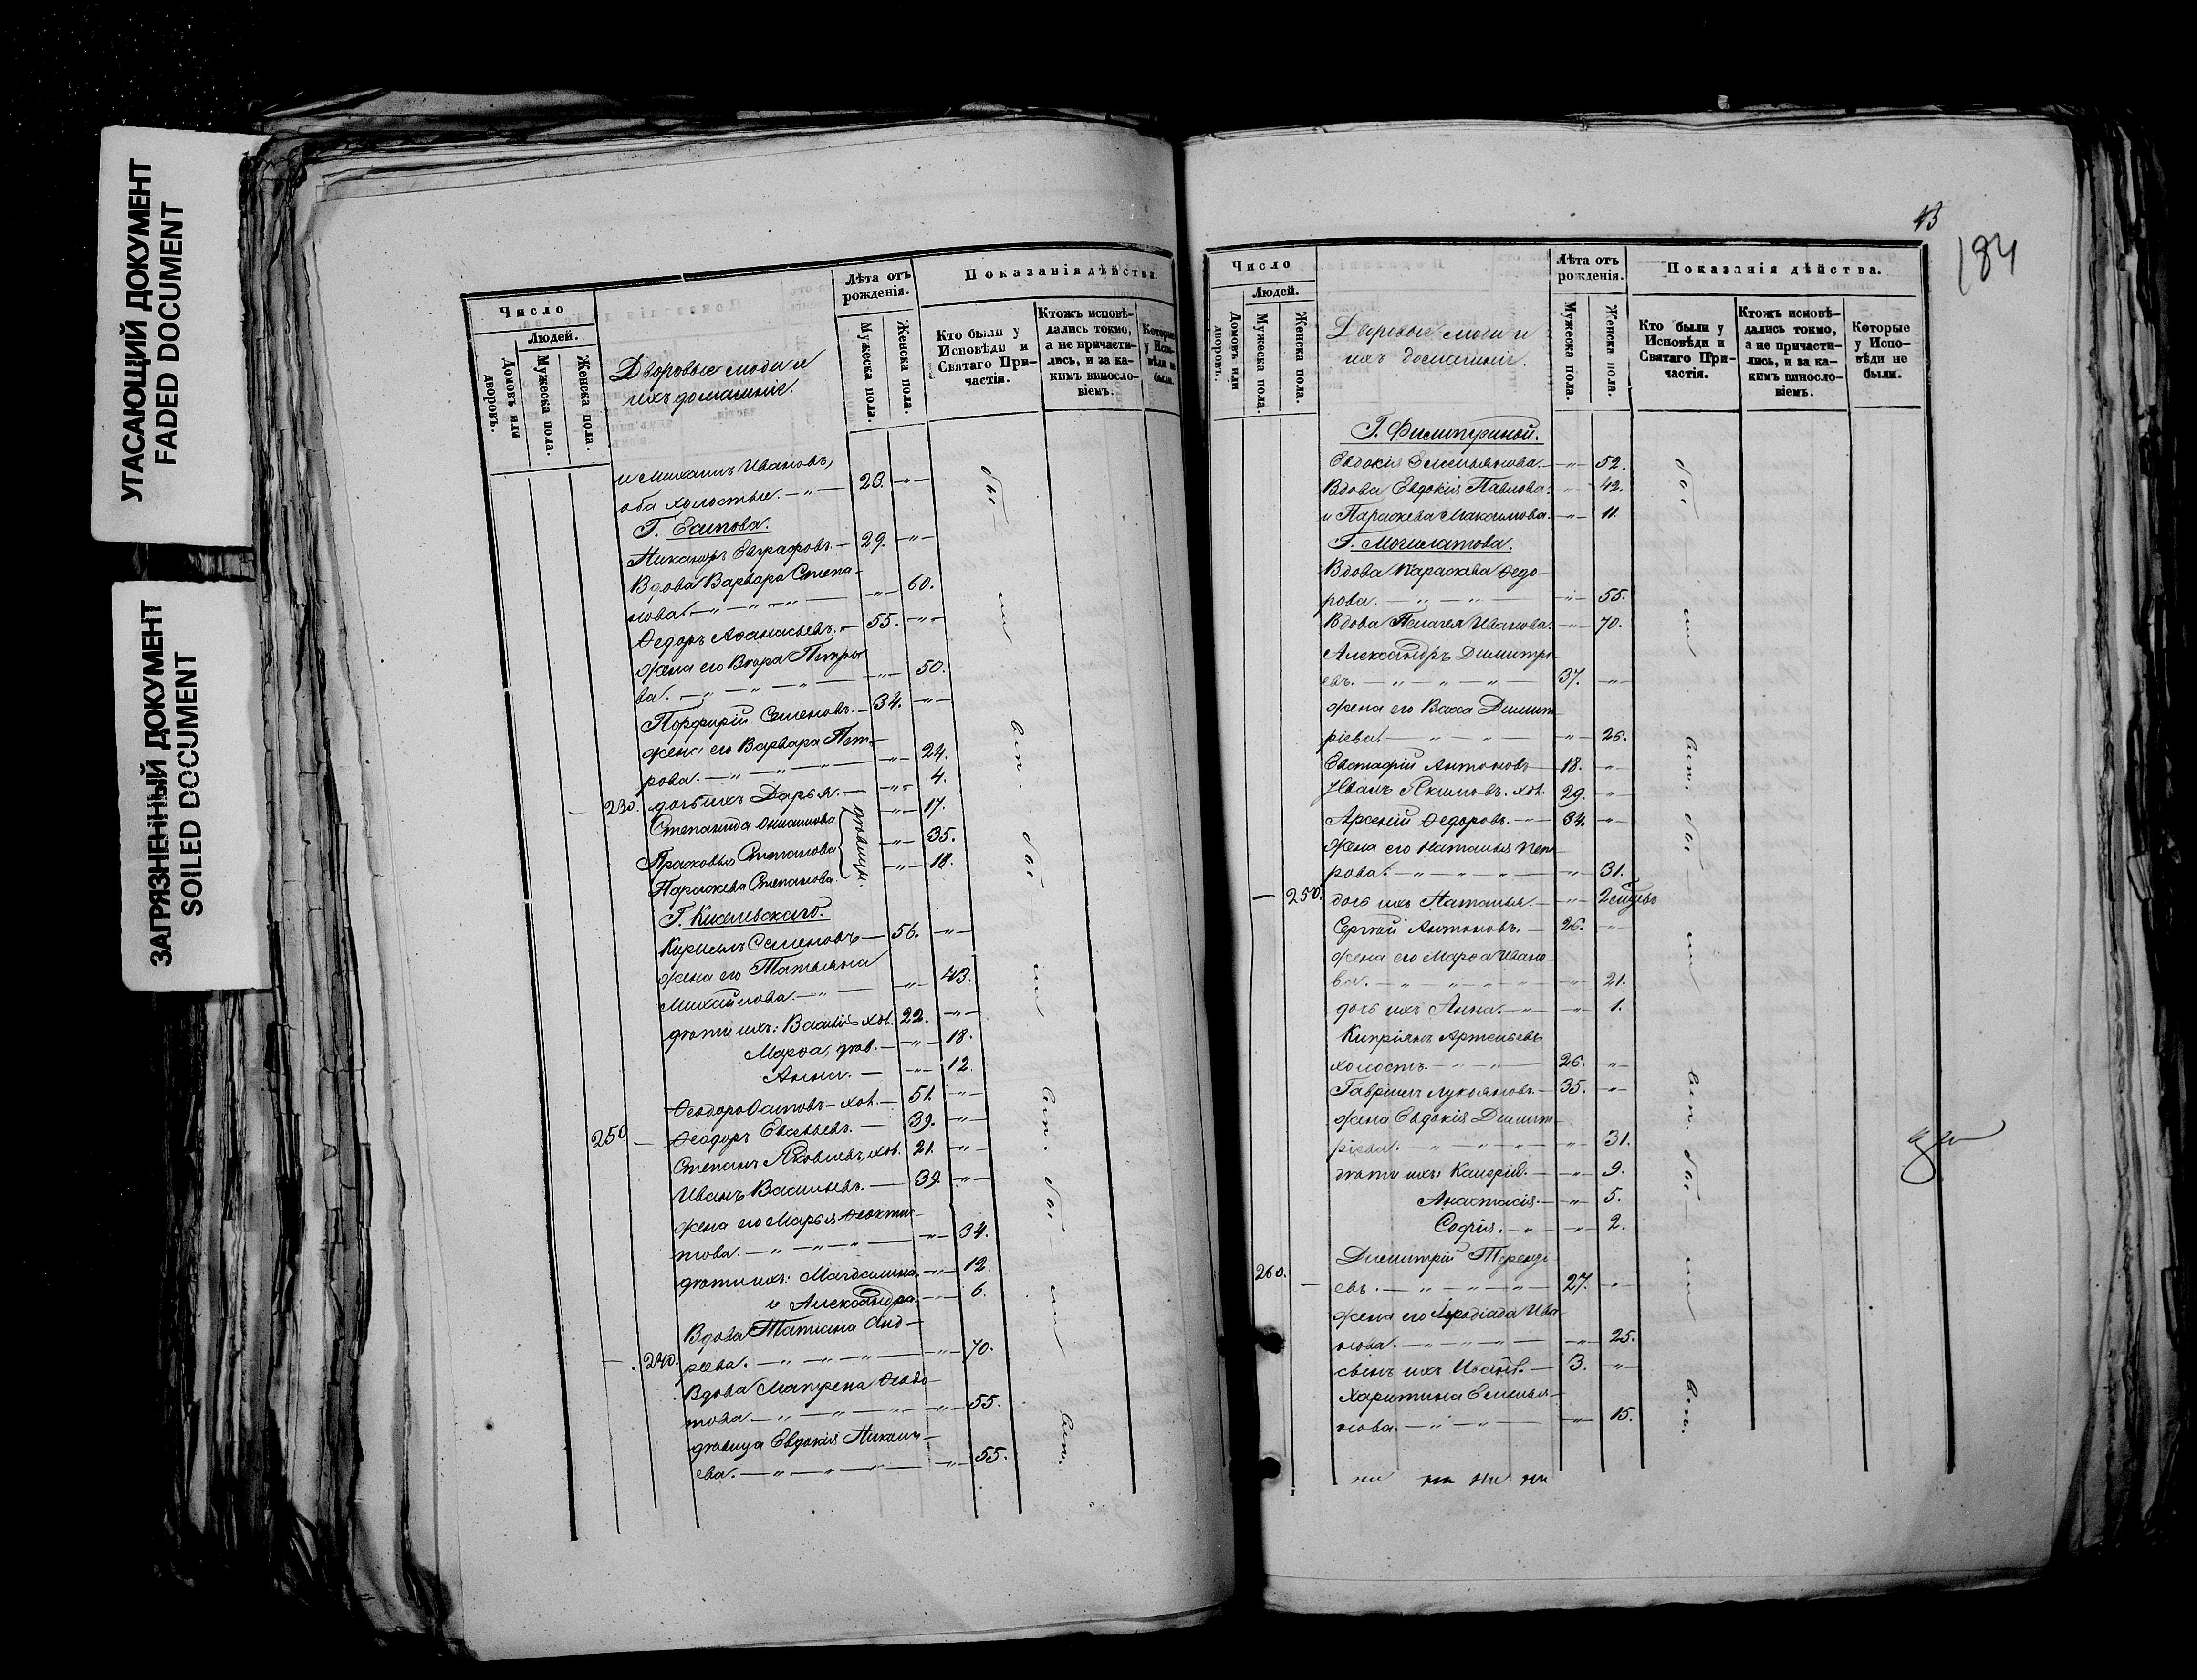 УГАСАЮЩИЙ ДОКУМЕНТ
FADED DOCUMENT
ЗАГРЯЗНЕННЫЙ ДОКУМЕНТ
SOILED DOCUMENT
Число
Людей.
Домовъ или дворовъ.
Мужеска пола.
Женска пола.
Дворовые люди и
ихъ домашніе.
Лѣта отъ рожденія.
Мужеска пола.
Женска пола.
Показанія дѣйства.
Кто были у Исповѣди и Святаго Причастія.
Ктожъ исповѣдались токмо, а не причастились, и за какимъ винословіемъ.
Которые у Исповѣди не были.
и Михаилъ Ивановъ,
оба холостые. — „ — 23. — „ —
Г. Есипова.
Никаноръ Евграфовъ. — 29. — „ —
Вдова Варвара Степа-
нова. — „ — „ — „ — — „ — 60.
Ѳедоръ Аѳанасьевъ. — 55. — „ —
жена его Вѣра Петро-
ва. — „ — „ — „ — — „ — 50.
Порфирій Семеновъ. — 34. — „ —
жена его Варвара Пет-
рова. — „ — „ — „ — — „ — 24.
230. дочь ихъ Дарья. — — „ — 4.
Степанида — „ — 17.
Прасковья Степанова — „ — 35.
Параскева Степанова. — „ — 18.
дѣвицы.
Г. Киселевскаго.
Кириллъ Семеновъ — 56. — „ —
жена его Татьяна
Михайлова. — „ — — „ — 43.
дѣти ихъ: Василій хол. 22. — „ —
Марѳа, дѣв. — — „ — 18.
Анна. — — „ — 12.
Ѳеодоръ Осиповъ — хол. — 51. — „ —
250 — Ѳеодоръ Евсевьевъ. — 39. — „ —
Степанъ Яковлевъ, хол. 21. — „ —
Иванъ Васильевъ. — 39. — „ —
жена его Марья Ѳеоктис-
това. — „ — „ — „ — — „ — 34.
дѣти ихъ: Магдалина. — „ — 12.
и Александра. — „ — 6.
Вдова Татіана Анд-
— 240. реева. — „ — „ — „ — — „ — 70.
Вдова Матрена Ѳедо-
това — „ — „ — „ — — „ — 55.
дѣвица Евдокія
ева. — „ — „ — „ — — „ — 55.
были
всѣ.
были
всѣ.
были
всѣ.
43
184
Число
Людей.
Домовъ или дворовъ.
Мужеска пола.
Женска пола.
Дворовые люди и
ихъ домашніе.
Лѣта отъ рожденія.
Мужеска пола.
Женска пола.
Показанія дѣйства.
Кто были у Исповѣди и Святаго Причастія.
Ктожъ исповѣдались токмо, а не причастились, и за какимъ винословіемъ.
Которые у Исповѣди не были.
Евдокія Емельянова. — „ — 52.
Вдова Евдокія Павлова. — „ — 42.
и Параскева Максимова. — „ — 11.
Г. Могилатова.
Вдова Параскева Ѳедо-
рова. — „ — „ — — „ — 55.
Вдова Пелагея Иванова. — „ — 70.
Александръ Димитрі-
евъ. — „ — „ — „ — 37. — „ —
жена его Васса Димит-
ріева. — „ — „ — — „ — 26.
Евстафій Антоновъ — 18. — „ —
Иванъ Якимовъ. хол. 29. — „ —
Арсеній Ѳедоровъ. — „ — 34. — „ —
жена его Наталья Пет-
рова. — „ — „ — „ — — „ — 31.
— 250. дочь ихъ Наталья. — — „ — 2
Сергѣй Антоновъ. — 26. — „ —
жена его Марѳа Ивано-
ва. — „ — „ — „ — — „ — 21.
дочь ихъ Анна. — „ — — „ — 1.
Кипріянъ Артемьевъ
холостъ. — „ — „ — 26. — „ —
Гавріилъ Лукьяновъ. — 35. — „ —
жена Евдокія Димит-
ріева. — „ — „ — — „ — 31.
— „ — 9.
Анастасія. — — „ — 5.
Софія. — „ — — „ — 2.
Димитрій Терентьевъ
260. — евъ. — „ — „ — „ — 27. — „ —
жена его Иродіада Ива-
нова. — „ — „ — „ — — „ — 25.
сынъ ихъ Иванъ. — 3. — „ —
Харитина Емелья-
нова. — „ — „ — — „ — 15.
были
всѣ.
были
всѣ.
были
всѣ.